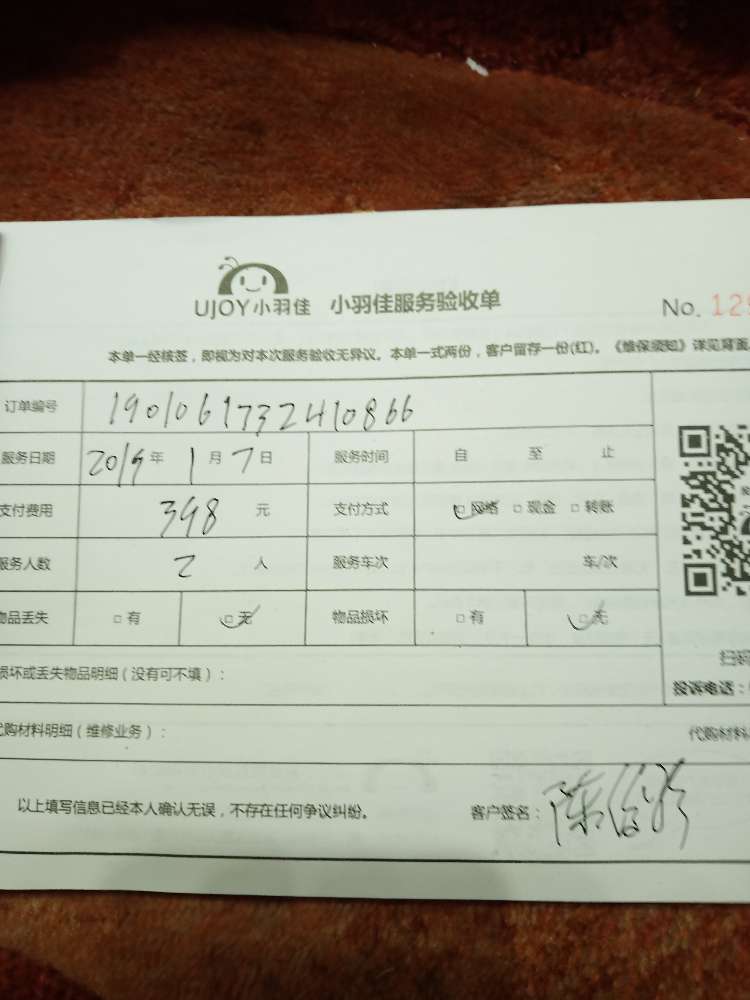 UJOY小羽佳 小羽佳服务验收单 No. 129
本单一经核签，即视为对本次服务验收无异议。本单一式两份，客户留存一份(红)。《维保须知》详见背面
订单编号 190106173241086 6
服务日期 2019年 1月 7日 服务时间 自 至 止
支付费用 398 元 支付方式 □网络 □现金 □转账
服务人数 2 人 服务车次 车/次
物品丢失 □有 □无 物品损坏 □有 □无
损坏或丢失物品明细（没有可不填）：
扫码
投诉电话：
代购材料明细（维修业务）： 代购材料
以上填写信息已经本人确认无误，不存在任何争议纠纷。 客户签名：陈